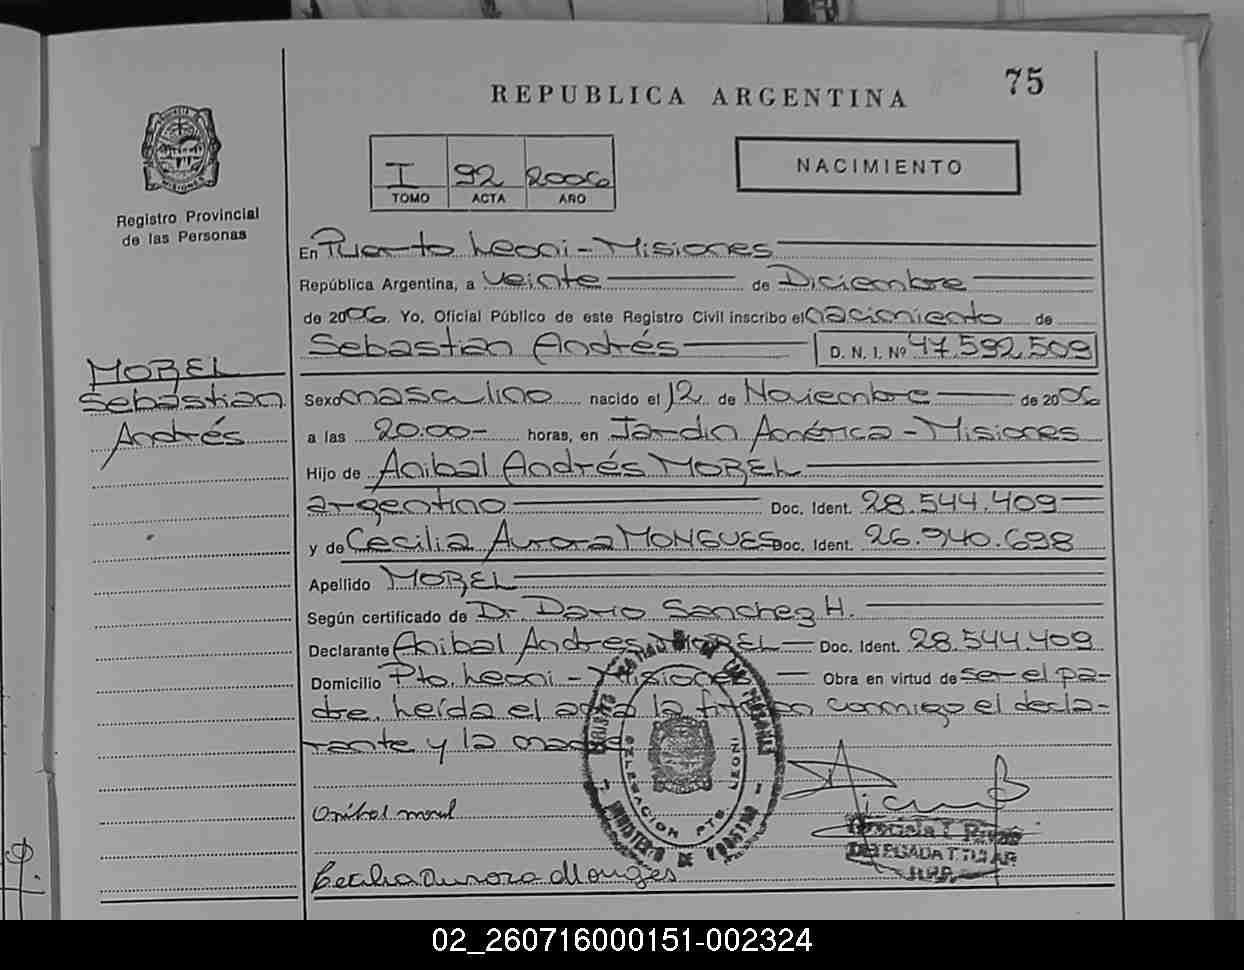 75
REPUBLICA ARGENTINA
I 92 2006
TOMO ACTA AÑO
NACIMIENTO
Registro Provincial
de las Personas
En Puerto Leoni - Misiones
República Argentina, a veinte de Diciembre
de 2006. Yo, Oficial Público de este Registro Civil inscribo el nacimiento de
Sebastian Andrés D. N. I. Nº 47.592.509
MOREL
Sebastian
Andrés
Sexo masculino nacido el 12 de Noviembre de 2006
a las 20:00- horas, en Jardin América - Misiones
Hijo de Anibal Andrés MOREL
argentino Doc. Ident. 28.544.409
y de Cecilia Aurora MONGUES Doc. Ident. 26.940.698
Apellido MOREL
Según certificado de Dr. Dario Sanchez H.
Declarante Anibal Andres MOREL Doc. Ident. 28.544.409
Domicilio Pto. Leoni - Misiones Obra en virtud de ser el pa-
dre. Leída el acta la firman conmigo el decla-
rante y la madre
DELEGACION PTO. LEONI
MINISTERIO DE GOBIERNO
Anibal morel
DELEGADA TITULAR
Cecilia Aurora Mongés
02_260716000151-002324